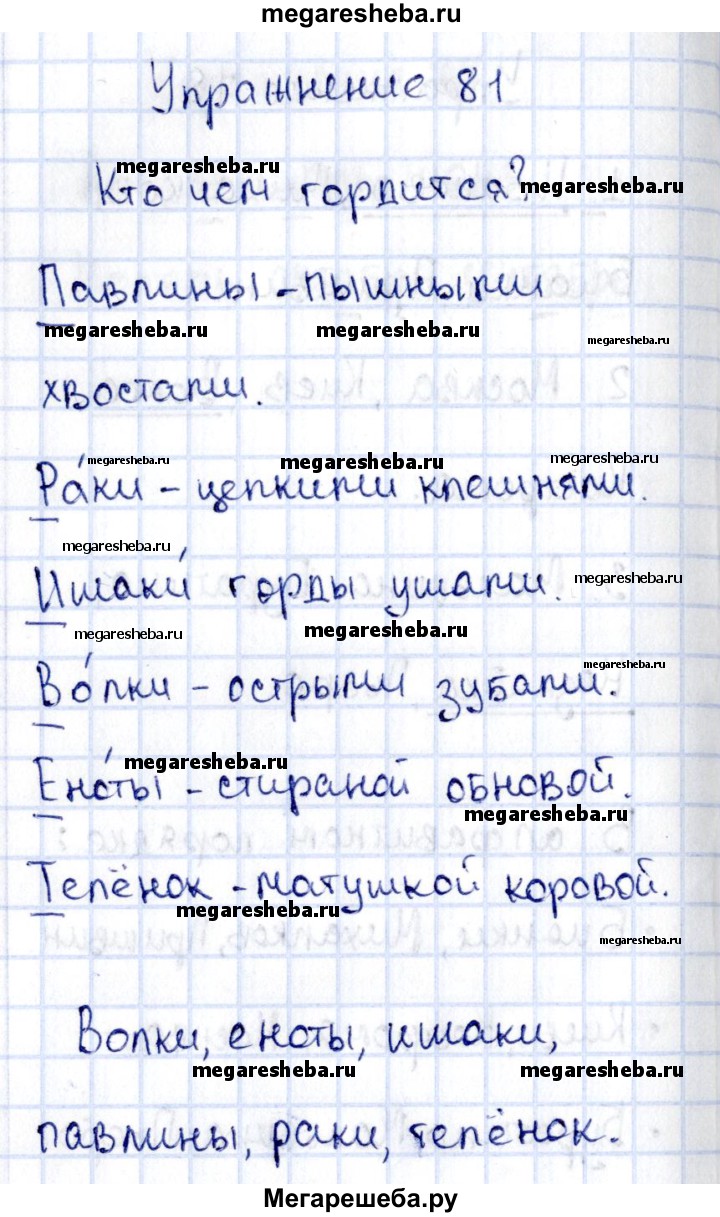 megaresheba.ru
Упражнение 81
megaresheba.ru
Кто чем гордится?
megaresheba.ru
Павлины – пышными
megaresheba.ru megaresheba.ru megaresheba.ru
хвостами.
megaresheba.ru megaresheba.ru megaresheba.ru
Ра́ки – цепкими клешнями.
megaresheba.ru megaresheba.ru
Ишаки́ горды ушами.
megaresheba.ru megaresheba.ru
megaresheba.ru
Во́лки – острыми зубами.
megaresheba.ru
Ено́ты – стираной обновой.
megaresheba.ru
Телёнок – матушкой коровой.
megaresheba.ru
megaresheba.ru
Волки, еноты, ишаки,
megaresheba.ru megaresheba.ru
павлины, раки, телёнок.
Мегарешеба.ру